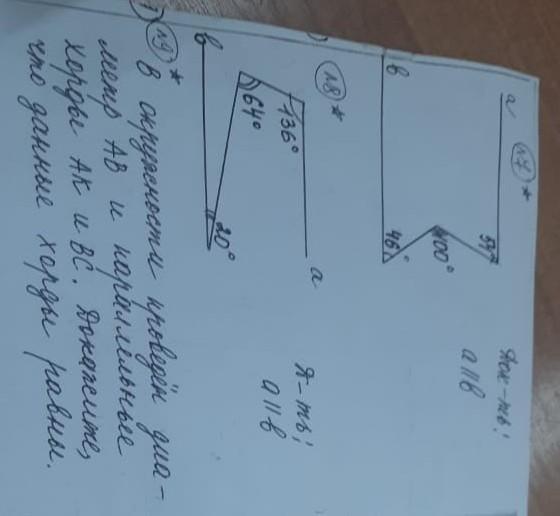 №7*
a
54°
100°
46°
b
Док-ть:
a||b
№8*
a
136°
64°
20°
b
Д-ть:
a||b
№9*
В окружности проведён диа-
метр AB и параллельные
хорды AK и BC. Докажите,
что данные хорды равны.